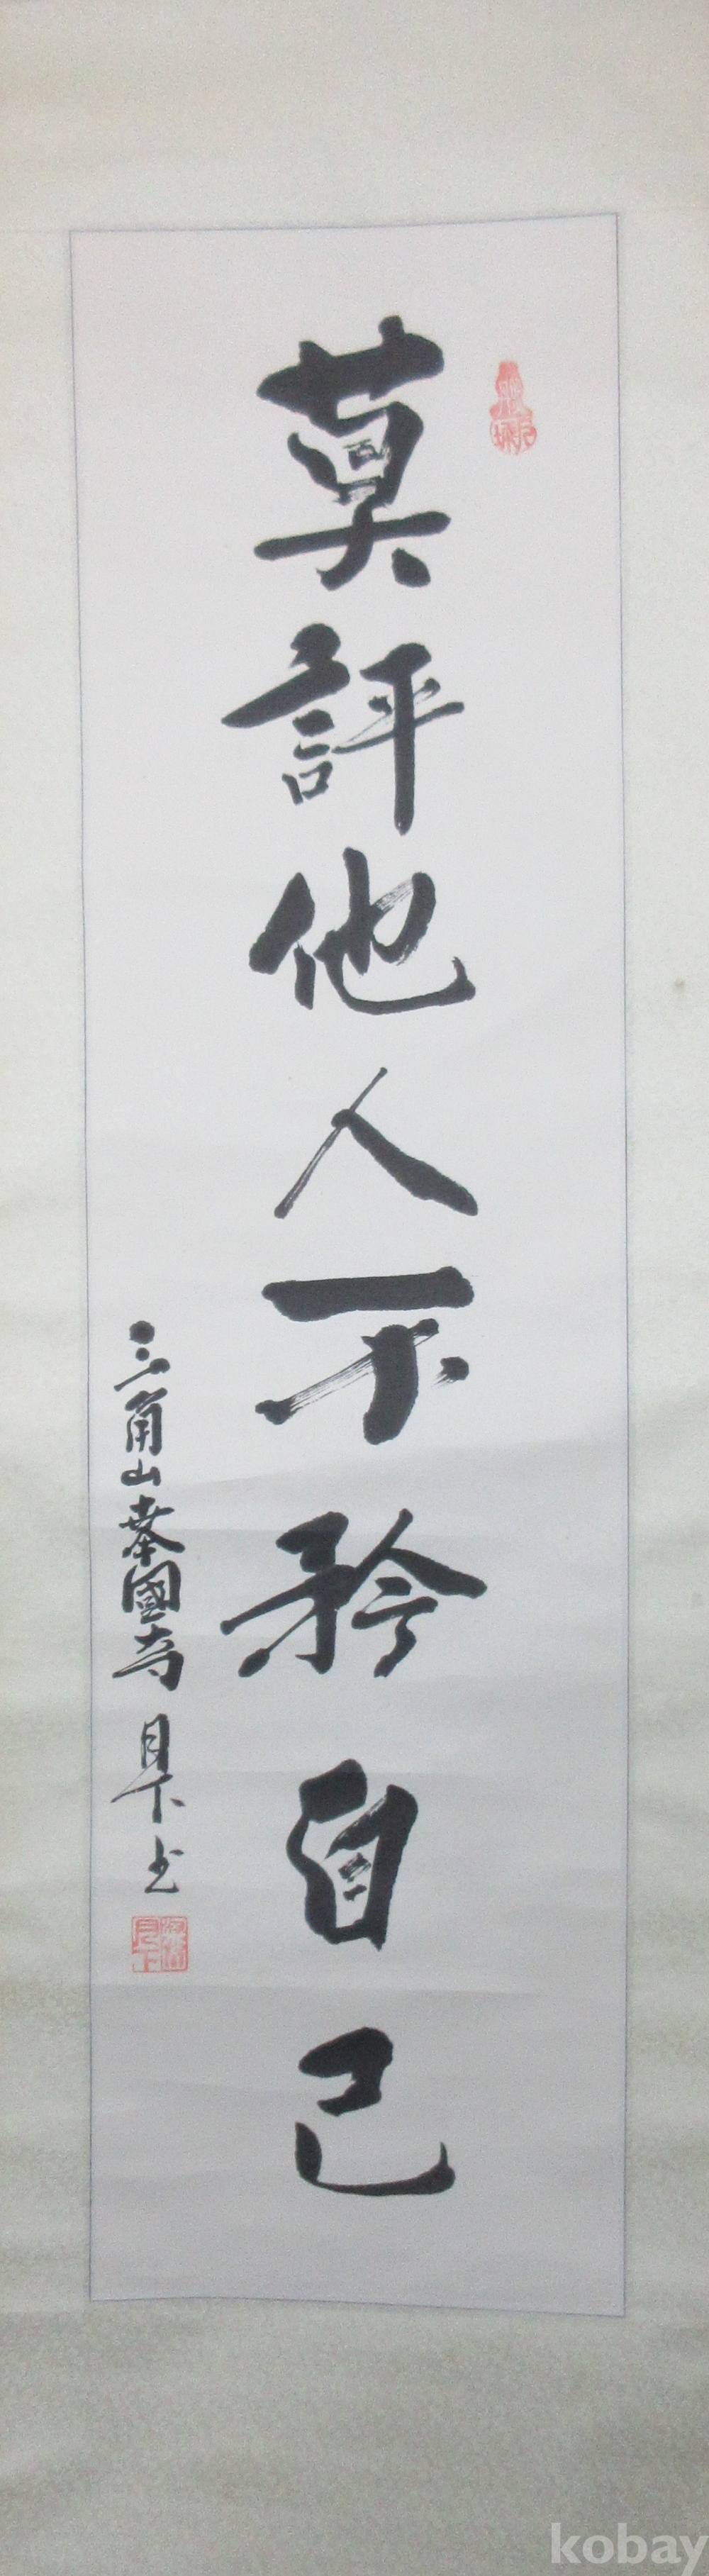 莫評他人不矜自己
三角山奉國寺 月下 书
月下
kobay